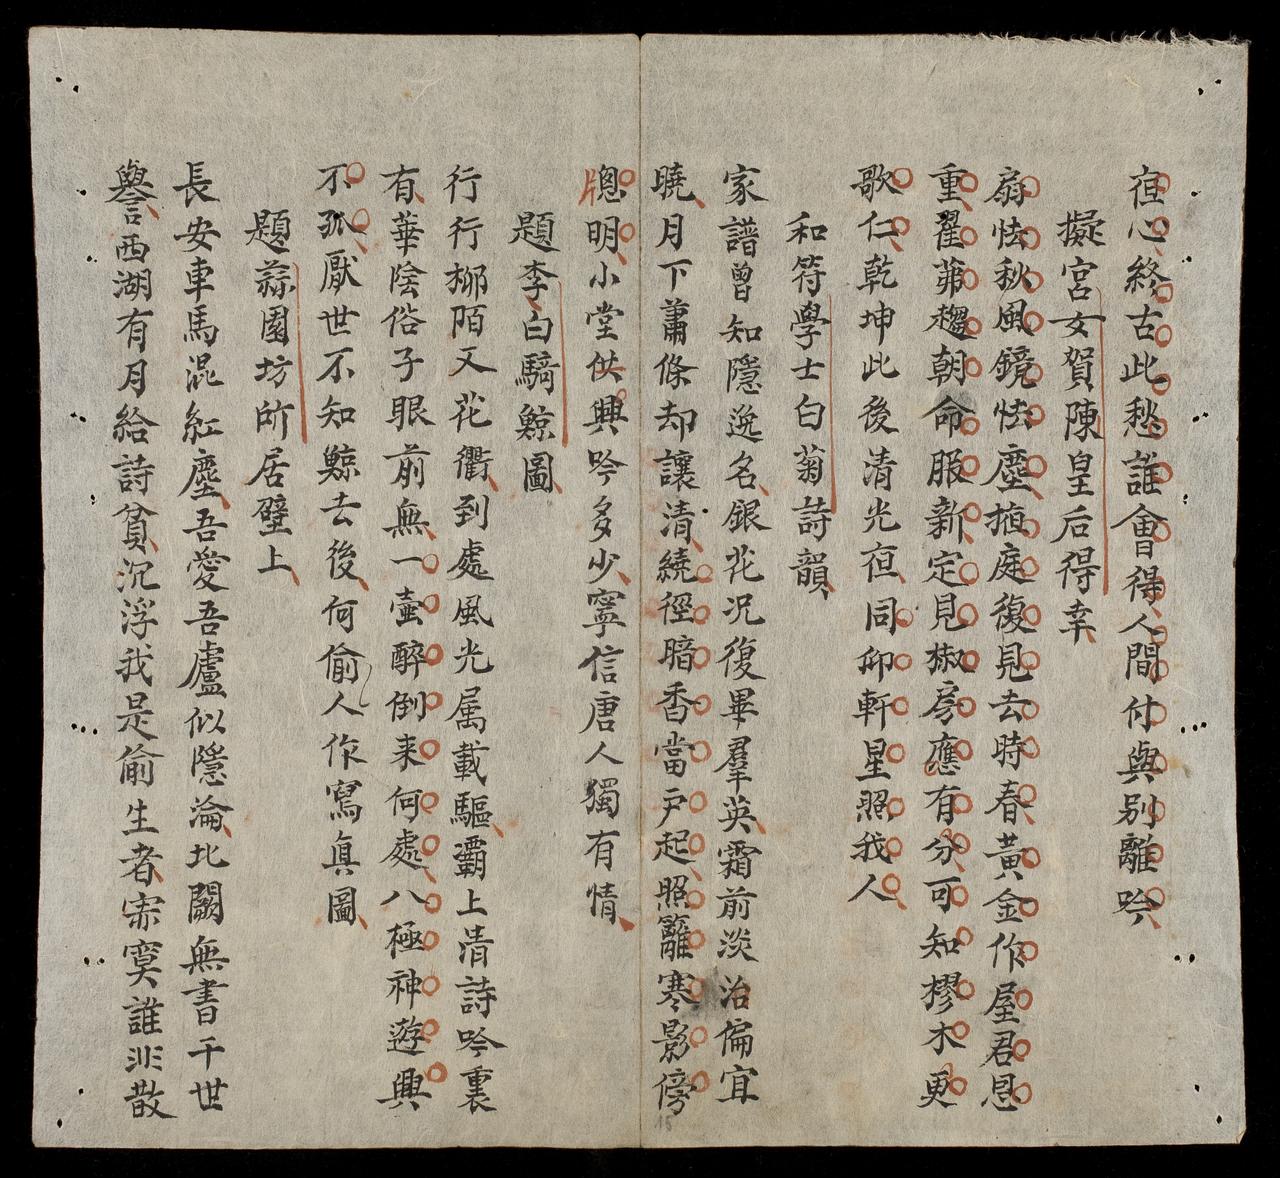 亱心終古此愁誰會得人間付與別離吟
擬宮女賀陳皇后得幸
扇怯秋風鏡怯塵掖庭復見去時春黃金作屋君恩
重翟茀趨朝命服新定見椒房應有分可知樛木更
歌仁乾坤此後清光亱同仰軒星照我人
和符學士白菊詩韻
家譜曾知隱逸名銀花況復畢羣英霜前淡治偏宜
曉月下蕭條却讓清繞徑暗香當戶起照籬寒影傍
牕明小堂供興吟多少寧信唐人獨有情
題李白騎鯨圖
行行柳陌又花衢到處風光属載驅灞上清詩吟裏
有華陰俗子眼前無一壷醉倒来何處八極神遊興
不孤厭世不知鯨去後何偷人作寫真圖
題蒜園坊所居壁上
長安車馬混紅塵吾愛吾廬似隱淪北闕無書干世
譽西湖有月給詩貧沉浮我是偷生者寂寞誰非散
15